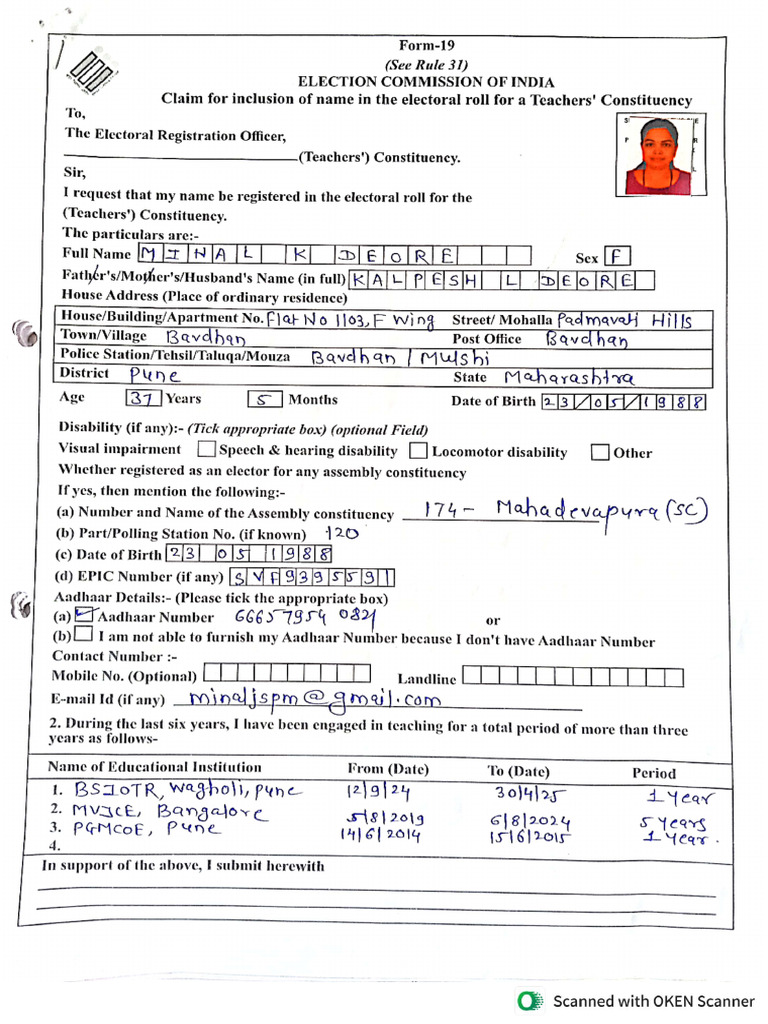 Form-19
(See Rule 31)
ELECTION COMMISSION OF INDIA
Claim for inclusion of name in the electoral roll for a Teachers' Constituency
To,
The Electoral Registration Officer,
(Teachers') Constituency.
Sir,
I request that my name be registered in the electoral roll for the
(Teachers') Constituency.
The particulars are:-
Full Name MINAL K DEORE Sex F
Father's/Mother's/Husband's Name (in full) KALPESH L DEORE
House Address (Place of ordinary residence)
House/Building/Apartment No. Flat No 1103, F Wing Street/ Mohalla Padmavati Hills
Town/Village Bavdhan Post Office Bavdhan
Police Station/Tehsil/Taluqa/Mouza Bavdhan / Mulshi
District Pune State Maharashtra
Age 37 Years 5 Months Date of Birth 23/05/1988
Disability (if any):- (Tick appropriate box) (optional Field)
Visual impairment Speech & hearing disability Locomotor disability Other
Whether registered as an elector for any assembly constituency
If yes, then mention the following:-
(a) Number and Name of the Assembly constituency 174- Mahadevapura (SC)
(b) Part/Polling Station No. (if known) 120
(c) Date of Birth 23 05 1988
(d) EPIC Number (if any) SVF9395591
Aadhaar Details:- (Please tick the appropriate box)
(a) Aadhaar Number 66657954 0821 or
(b) I am not able to furnish my Aadhaar Number because I don't have Aadhaar Number
Contact Number :-
Mobile No. (Optional) Landline
E-mail Id (if any) minaljspm@gmail.com
2. During the last six years, I have been engaged in teaching for a total period of more than three
years as follows-
Name of Educational Institution From (Date) To (Date) Period
1. BSIOTR, Wagholi, Pune 12/9/24 30/4/25 1 Year
2. MVJCE, Bangalore 5/8/2019 6/8/2024 5 Years
3. PGMCOE, Pune 14/6/2014 15/6/2015 1 Year.
4.
In support of the above, I submit herewith
Scanned with OKEN Scanner